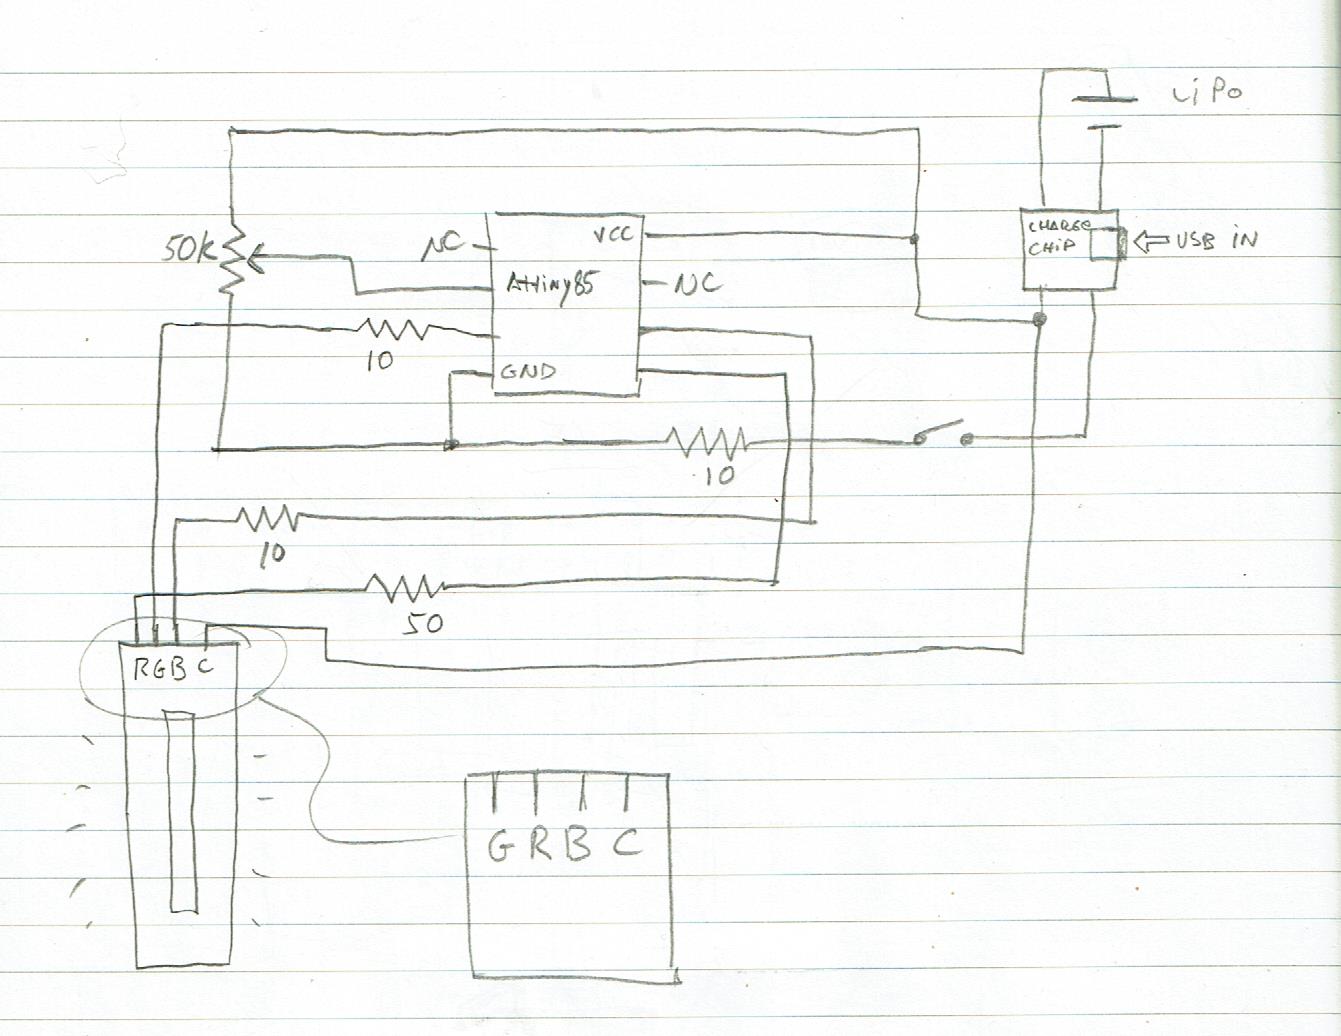 LiPo
CHARGE
CHIP
USB IN
50K
NC
VCC
Attiny85
NC
10
GND
10
10
50
RGB C
G R B C